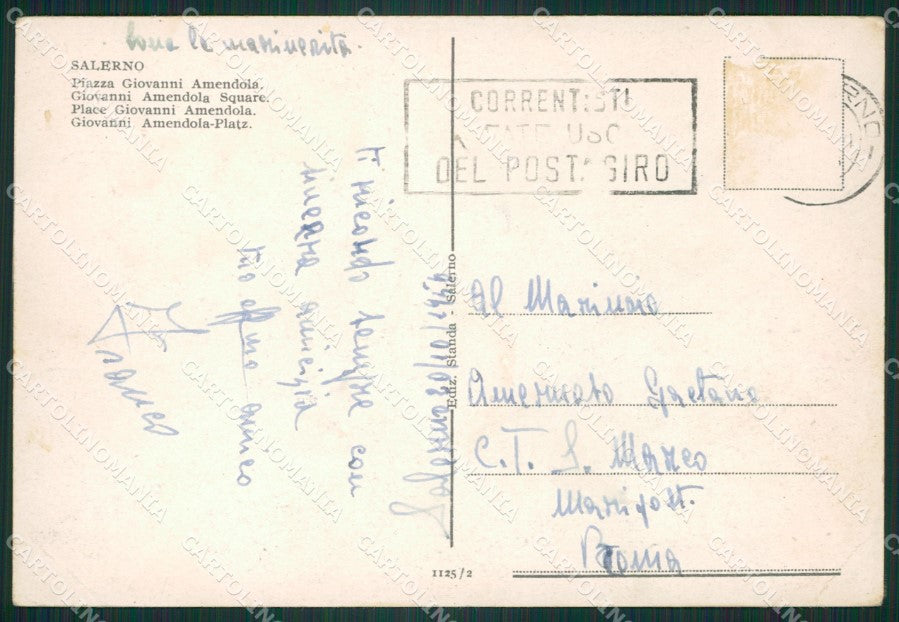 la
SALERNO
Piazza Giovanni Amendola.
Giovanni Amendola Square.
Place Giovanni Amendola.
Giovanni Amendola-Platz.
CORRENTISTI
FATE USO
DEL POSTAGIRO
Ti ricordo sempre con
sincera amicizia
tuo aff.mo amico
Franco
Salerno
Ediz. Standa - Salerno
Al Marinaio
Gaetano
C.T. S. Marco
Maripost.
Roma
1125/2
CARTOLINOMANIA